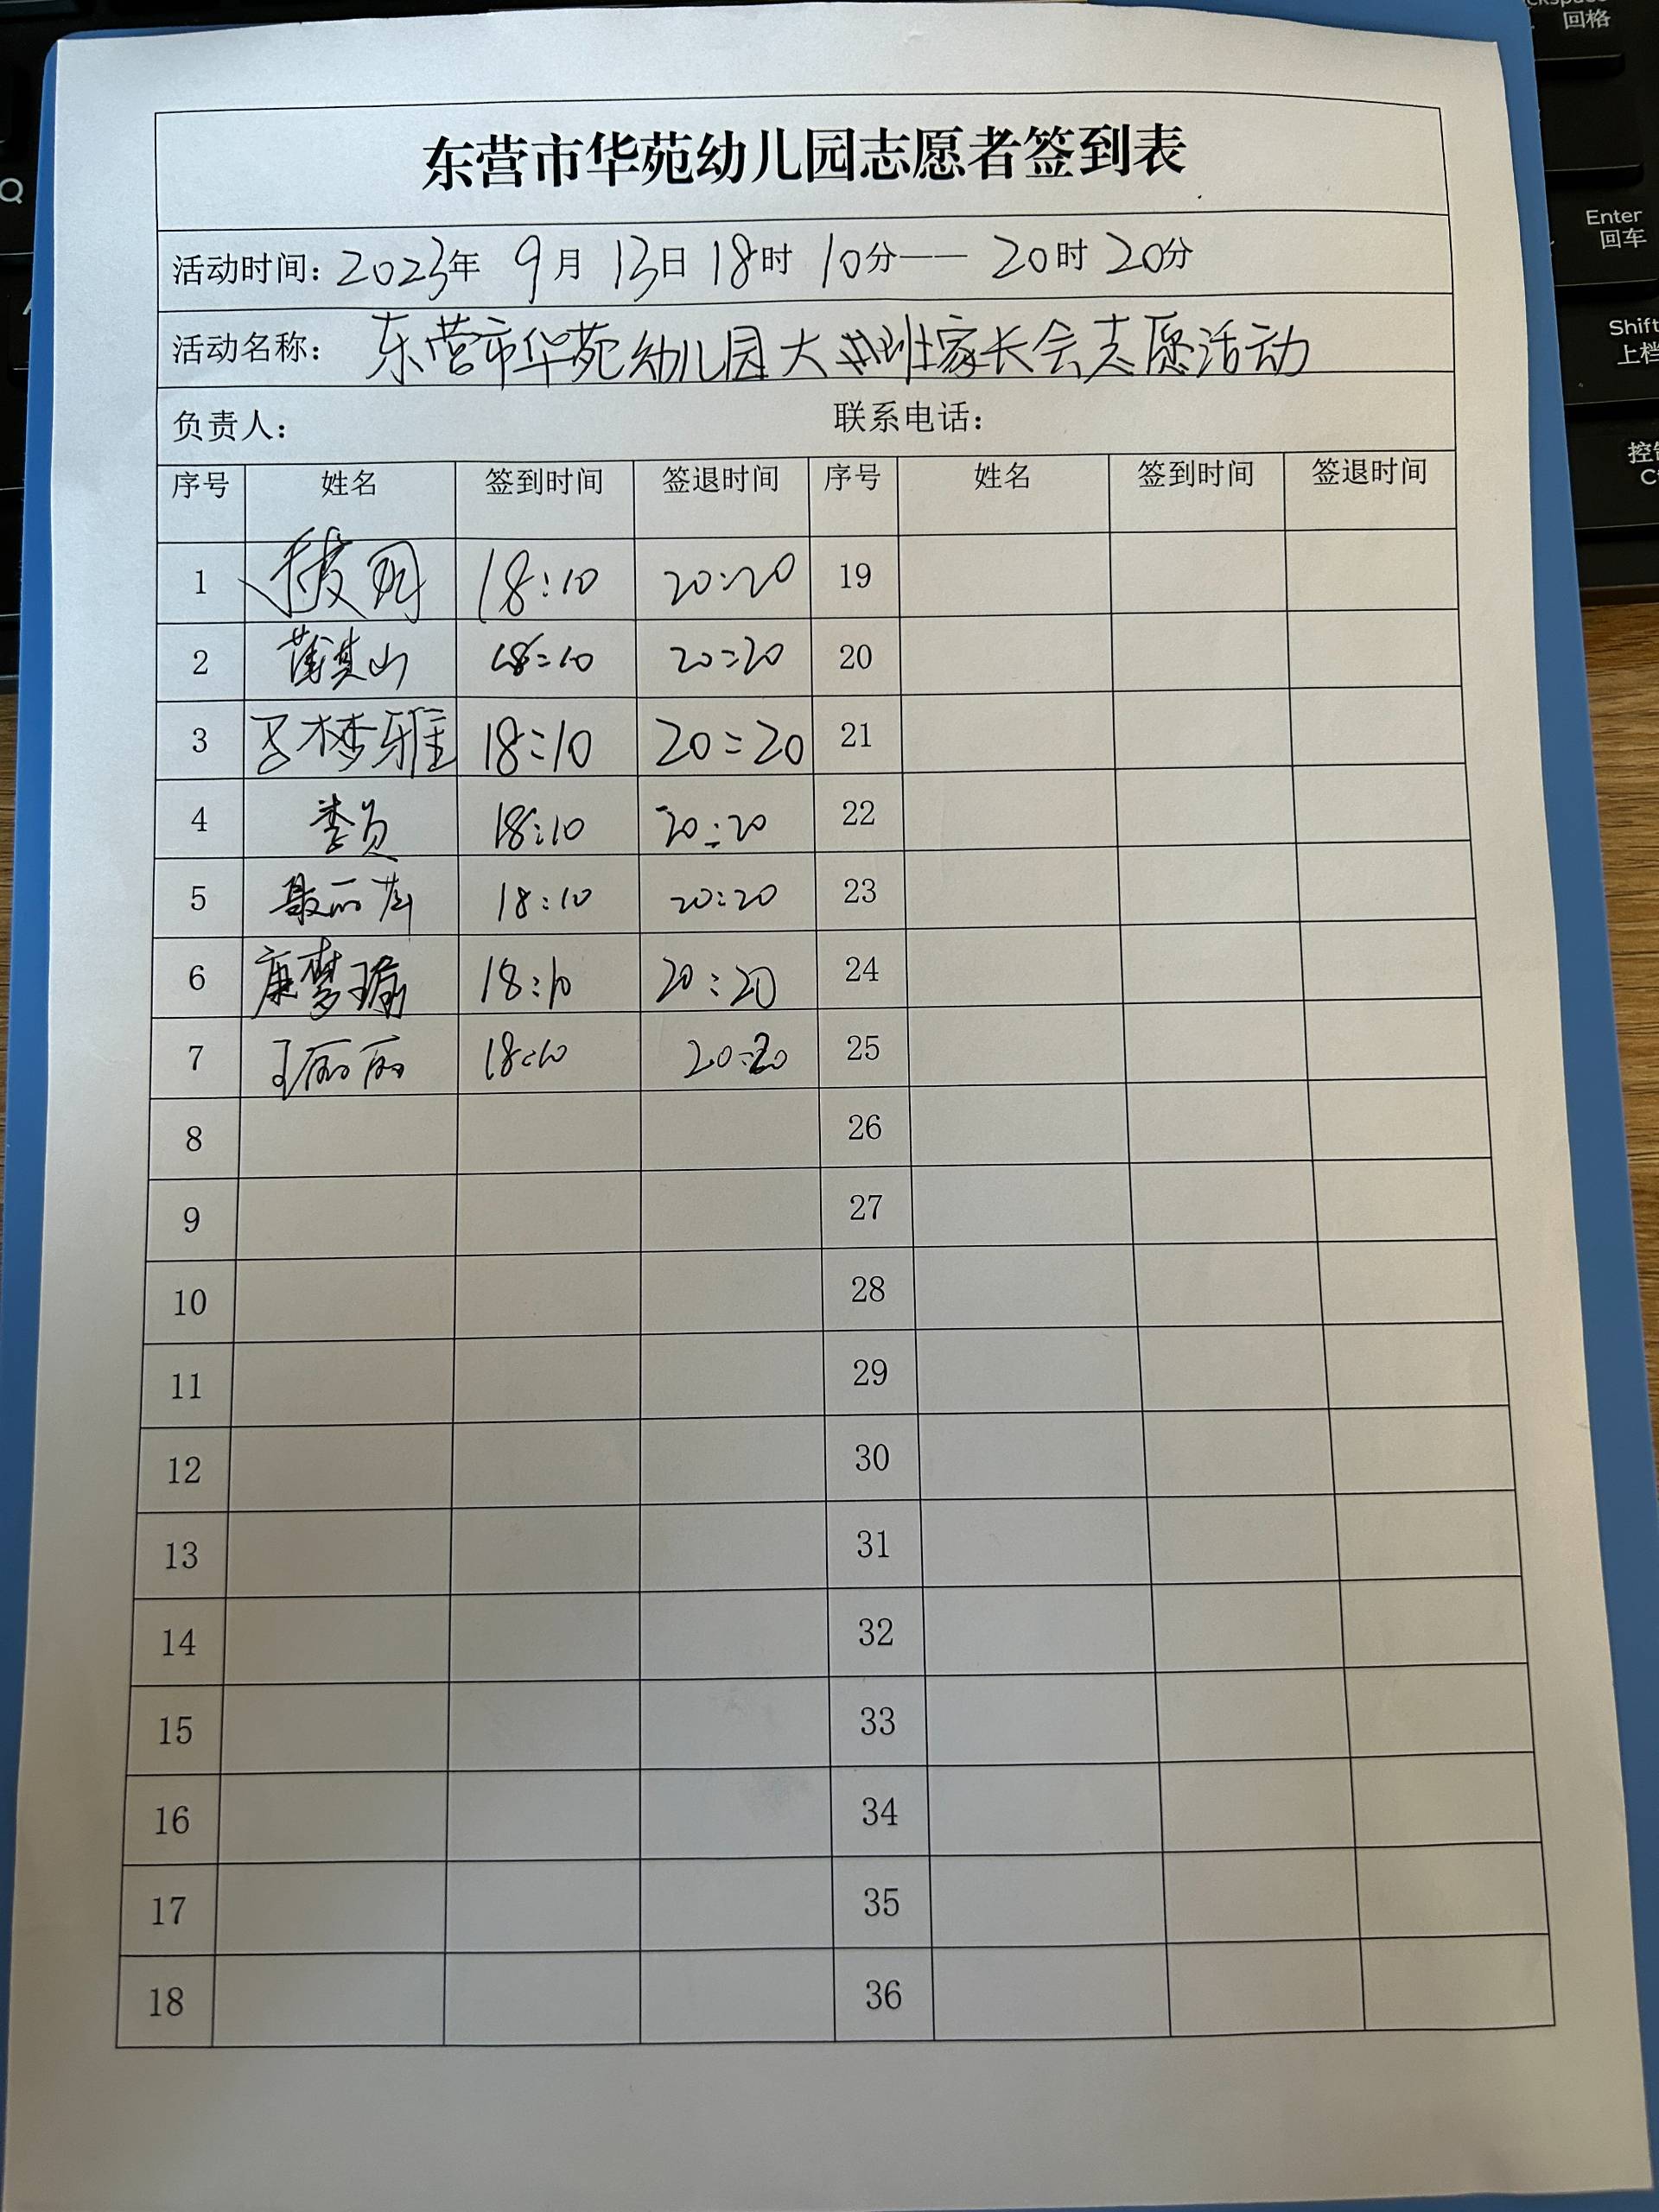 东营市华苑幼儿园志愿者签到表
活动时间：2023年 9月 13日 18时 10分—— 20时 20分
活动名称： 东营市华苑幼儿园大班家长会志愿活动
负责人： 联系电话：
序号 姓名 签到时间 签退时间 序号 姓名 签到时间 签退时间
1 18:10 20:20 19
2 18:10 20:20 20
3 梦雅 18:10 20:20 21
4 18:10 20:20 22
5 18:10 20:20 23
6 康梦瑜 18:10 20:20 24
7 王丽丽 18:10 20:20 25
8 26
9 27
10 28
11 29
12 30
13 31
14 32
15 33
16 34
17 35
18 36
回格
Enter
回车
Shift
上档